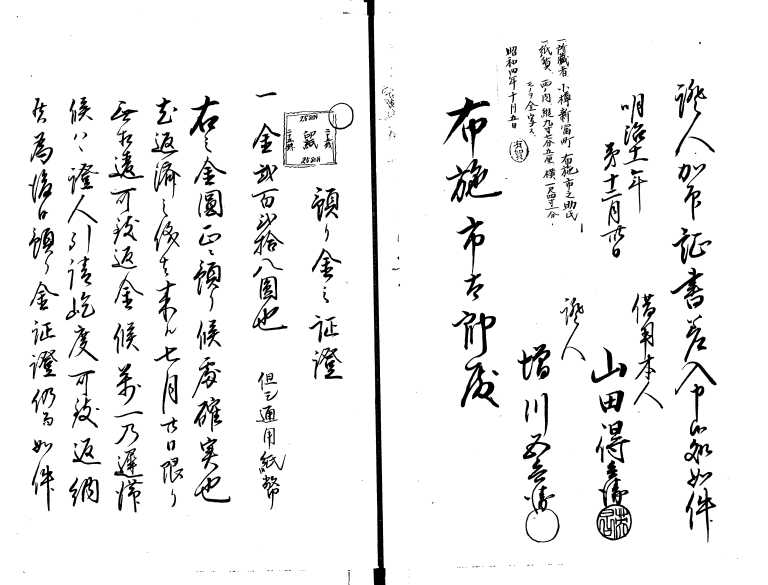 證人加印証書差入申処如件
明治十一年
第十二月廿日
借用本人
山田得兵衛
證人
増川又兵衛
布施市太郎殿
一所蔵者 小樽新富町 布施市之助氏
一紙質 西ノ内 縦九寸七分五厘 横一尺四寸二分
昭和四年十月五日
預り金之証證
印紙
一金弐百弐拾八圓也
但シ通用紙幣
右之金圓正ニ預り候處確実也
尤返済之儀者来ル七月廿日限り
無相違可致返金候萬一乃遅滞
候ハヽ證人引請屹度可致返納
為後日預り金証證仍而如件